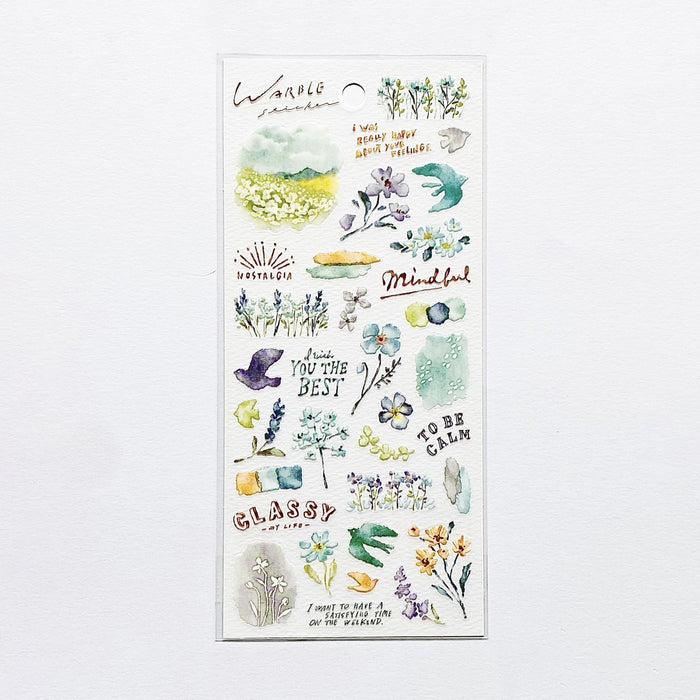 WARBLE
sticker
I WAS
REALLY HAPPY
ABOUT YOUR
FEELINGS.
NOSTALGIA
Mindful
I wish
YOU THE
BEST
TO BE
CALM
CLASSY
- MY LIFE -
I WANT TO HAVE A
SATISFYING TIME
ON THE WEEKEND.